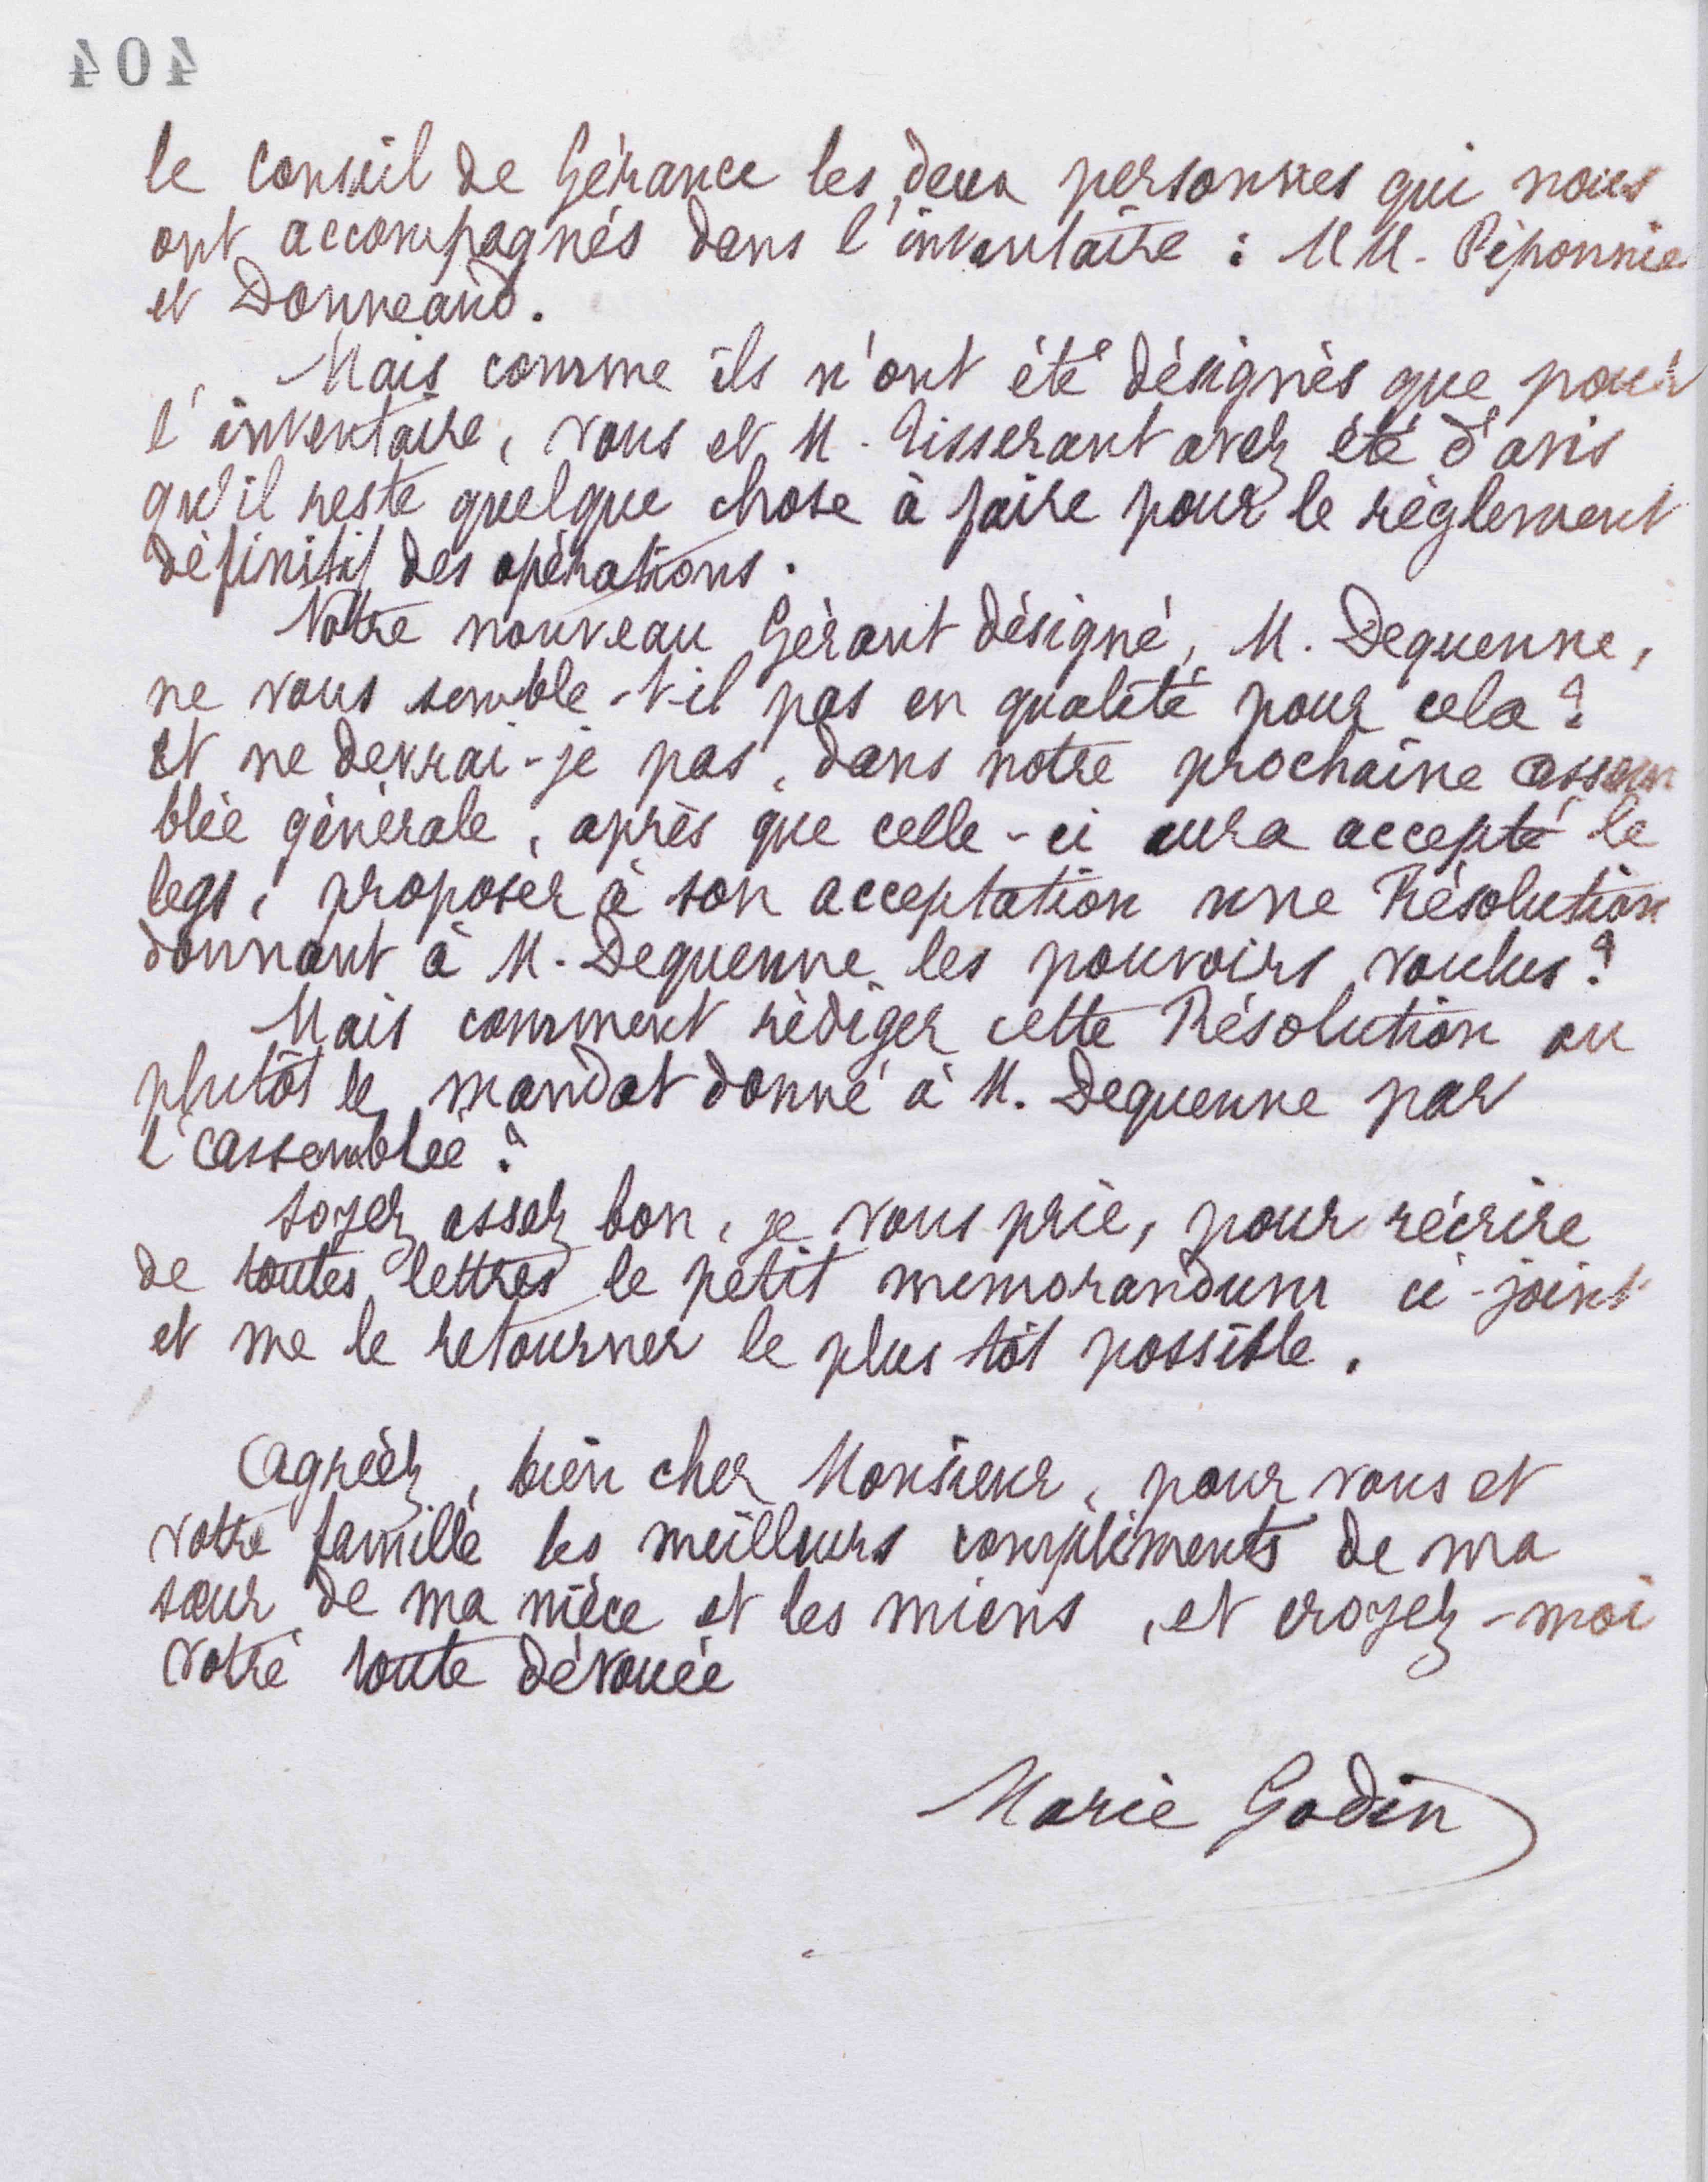 404
le Conseil de Gérance les deux personnes qui nous
ont accompagnés dans l'inventaire : MM. Péponnie
et Donneaud.
Mais comme ils n'ont été désignés que pour
l'inventaire, vous et M. Tisserant avez été d'avis
qu'il reste quelque chose à faire pour le règlement
définitif des opérations.
Notre nouveau Gérant désigné, M. Dequenne,
ne vous semble-t-il pas en qualité pour cela ?
Et ne devrai-je pas, dans notre prochaine assem
blée générale, après que celle-ci aura accepté le
legs, proposer à son acceptation une Résolution
donnant à M. Dequenne les pouvoirs voulus ?
Mais comment rédiger cette Résolution ou
plutôt le mandat donné à M. Dequenne par
l'assemblée ?
Soyez assez bon, je vous prie, pour récrire
de toutes lettres le petit memorandum ci-joint
et me le retourner le plus tôt possible.
Agréez, bien cher Monsieur, pour vous et
votre famille les meilleurs compliments de ma
sœur, de ma nièce et les miens, et croyez-moi
votre toute dévouée
Marie Godin